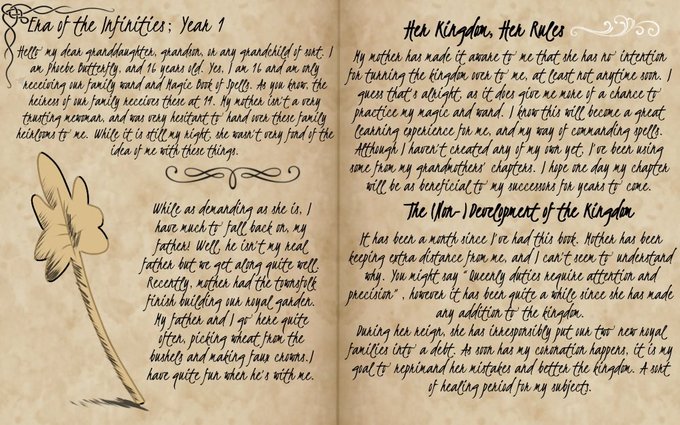 Era of the Infinities; Year 1
Hello my dear granddaughter, grandson, or any grandchild of sort. I
am Phoebe Butterfly, and 16 years old. Yes, I am 16 and am only
receiving our family wand and Magic Book of Spells. As you know, the
heiress of our family receives these at 14. My mother isn't a very
trusting mewoman, and was very hesitant to hand over these family
heirlooms to me. While it is still my right, she wasn't very fond of the
idea of me with these things.
While as demanding as she is, I
have much to fall back on, my
father! Well, he isn't my real
father but we get along quite well.
Recently, mother had the townsfolk
finish building our royal garden.
My father and I go here quite
often, picking wheat from the
bushels and making faux crowns.I
have quite fun when he's with me.
Her Kingdom, Her Rules
My mother has made it aware to me that she has no intention
for turning the kingdom over to me, at least not anytime soon. I
guess that's alright, as it does give me more of a chance to
practice my magic and wand. I know this will become a great
learning experience for me, and my way of commanding spells.
Although I haven't created any of my own yet, I've been using
some from my grandmothers' chapters. I hope one day my chapter
will be as beneficial to my successors for years to come.
The (Non-)Development of the Kingdom
It has been a month since I've had this book. Mother has been
keeping extra distance from me, and I can't seem to understand
why. You might say "Queenly duties require attention and
precision", however it has been quite a while since she has made
any addition to the kingdom.
During her reign, she has irresponsibly put our two new royal
families into a debt. As soon has my coronation happens, it is my
goal to reprimand her mistakes and better the kingdom. A sort
of healing period for my subjects.